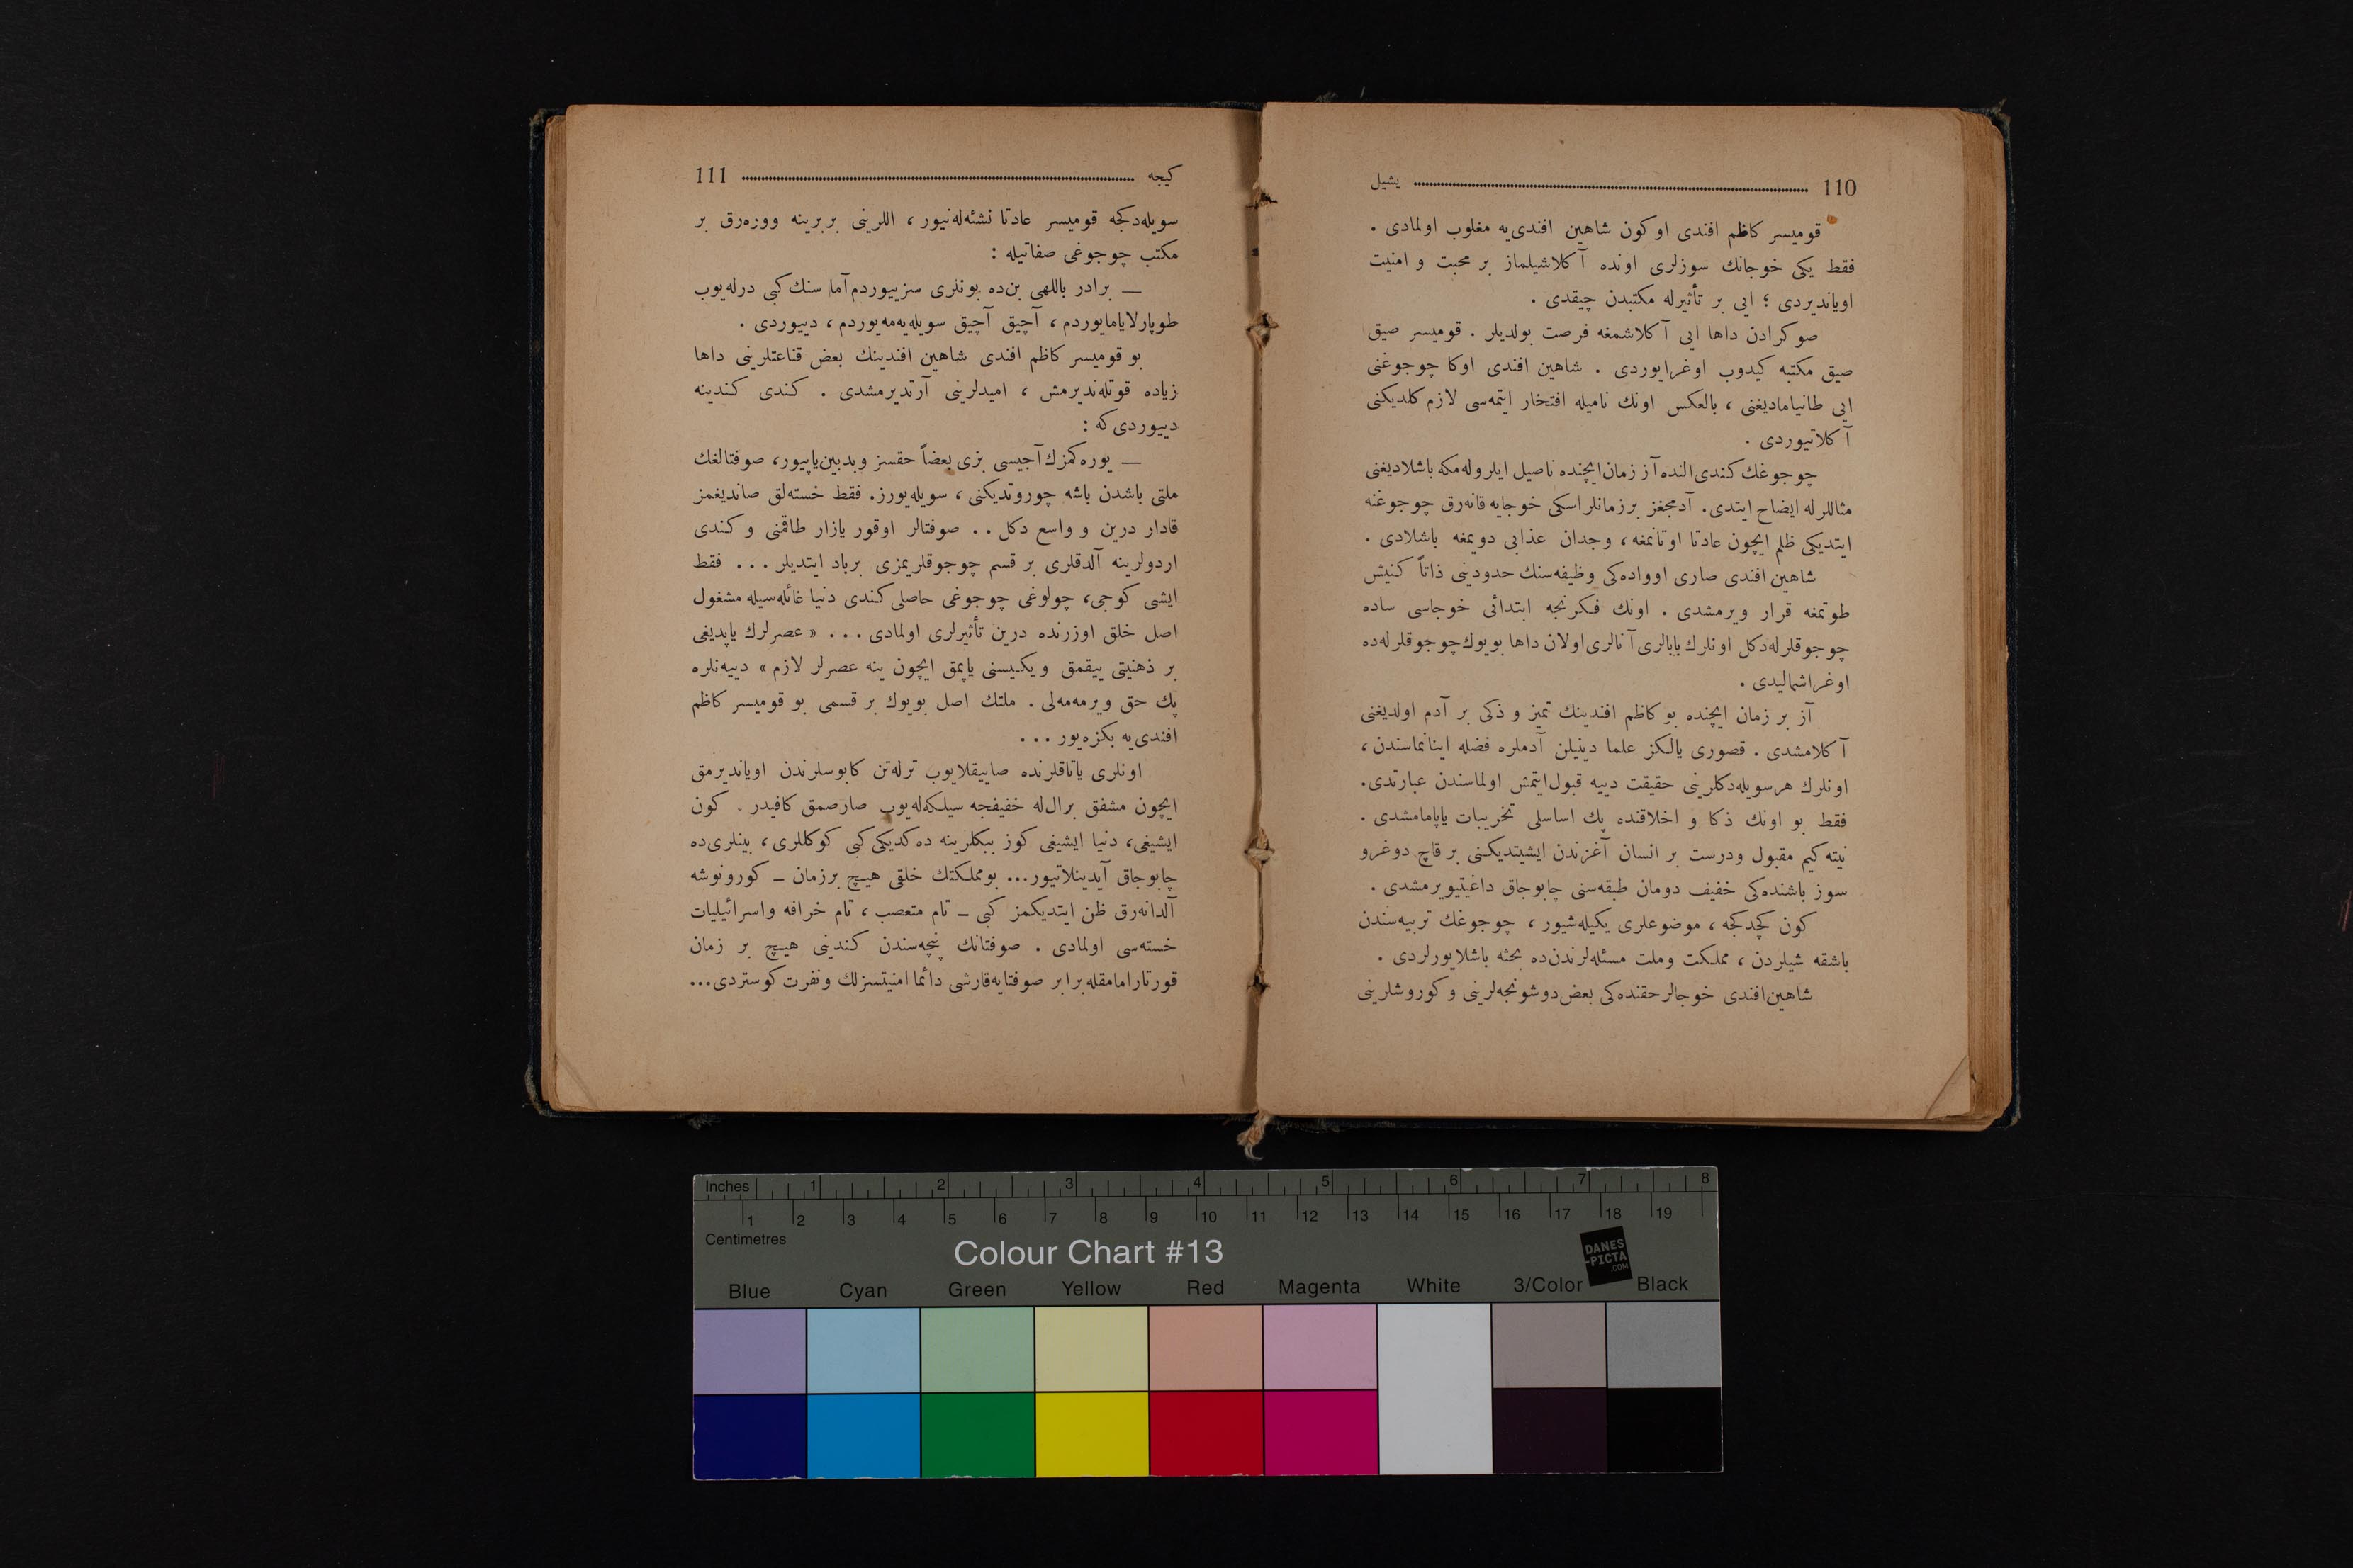 110 يشيل
قوميسر كاظم افندى او كون شاهين افندى‌يه مغلوب اولمادى .
فقط يكى خوجانك سوزلرى اونده آكلاشيلماز بر محبت و امنيت
اوياندیردى ؛ ايى بر تأثيرله مكتبدن چيقدى .
صوكرادن داها ايى آكلاشمغه فرصت بولديلر . قوميسر صيق
صيق مكتبه كيدوب اوغرايوردى . شاهين افندى اوكا چوجوغنى
ايى طانياماديغنى ، بالعكس اونك ناميله افتخار ايتمه‌سى لازم كلديكنى
آكلاتيوردى .
چوجوغك كندى النده آز زمان ايچنده ناصيل ايلروله‌مكه باشلاديغنى
مثاللرله ايضاح ايتدى. آدمجغز برزمانلر اسكى خوجايه قانه‌رق چوجوغنه
ايتديكى ظلم ايچون عادتا اوتانمغه ، وجدان عذابى دويمغه باشلادى .
شاهين افندى صارى اوواده‌كى وظيفه‌سنك حدودينى ذاتاً كنيش
طوتمغه قرار ويرمشدى . اونك فكرنجه ابتدائى خوجاسى ساده
چوجوقلرله‌دكل اونلرك بابالرى آنالرى‌اولان داها بويوك چوجوقلرله‌ده
اوغراشماليدى .
آز بر زمان ايچنده بو كاظم افندينك تميز و ذكى بر آدم اولديغنى
آكلامشدى . قصورى يالكز علما دينيلن آدملره فضله اينانماسندن ،
اونلرك هرسويله‌دكلرينى حقيقت دييه قبول‌ايتمش اولماسندن عبارتدى.
فقط بو اونك ذكا و اخلاقنده پك اساسلى تخريبات ياپامامشدى .
نيته‌كيم مقبول ودرست بر انسان آغزندن ايشيتديكنى بر قاچ دوغرو
سوز باشنده‌كى خفيف دومان طبقه‌سنى چابوجاق داغيتيويرمشدى .
كون كچدكجه ، موضوعلرى يكيله‌شيور ، چوجوغك تربيه‌سندن
باشقه شيلردن ، مملكت وملت مسئله‌لرندن‌ده بحثه باشلايورلردى .
شاهين‌افندى خوجالرحقنده‌كى بعض‌دوشونجه‌لرينى و كوروشلرينى
كيجه 111
سويله‌دكجه قوميسر عادتا نشئه‌له‌نيور ، اللرينى بربرينه ووره‌رق بر
مكتب چوجوغى صفاتيله :
— برادر باللهى بن‌ده بونلرى سزييوردم‌آما سنك كبى درله‌يوب
طوپارلايامايوردم ، آچيق آچيق سويله‌يه‌مه‌يوردم ، دييوردى .
بو قوميسر كاظم افندى شاهين افندينك بعض قناعتلرينى داها
زياده قوتله‌نديرمش ، اميدلرينى آرتديرمشدى . كندى كندينه
دييوردى‌كه :
— يوره‌كمزك آجيسى بزى بعضاً حقسز وبدبين‌ياپيور، صوفتالغك
ملتى باشدن باشه چوروتديكنى ، سويله‌يورز. فقط خسته‌لق صانديغمز
قادار درين و واسع دكل . . صوفتالر اوقور يازار طاقمنى و كندى
اردولرينه آلدقلرى بر قسم چوجوقلريمزى برباد ايتديلر . . . فقط
ايشى كوجى، چولوغى چوجوغى حاصلى كندى دنيا غائله‌سيله مشغول
اصل خلق اوزرنده درين تأثيرلرى اولمادى . . . « عصرلرك ياپديغى
بر ذهنيتى ييقمق و يكيسنى ياپمق ايچون ينه عصرلر لازم » دييه‌نلره
پك حق ويرمه‌مه‌لى . ملتك اصل بويوك بر قسمى بو قوميسر كاظم
افندى‌يه بكزه‌يور . . .
اونلرى ياتاقلرنده صاييقلايوب ترله‌تن كابوسلرندن اويانديرمق
ايچون مشفق برال‌له خفيفجه سيلكه‌له‌يوب صارصمق كافيدر . كون
ايشيغى، دنيا ايشيغى كوز ببكلرينه ده‌كديكى كبى كوكللرى ، بينلرى‌ده
چابوجاق آيدينلاتيور... بومملكتك خلقى هيچ برزمان ــ كورونوشه
آلدانه‌رق ظن ايتديكمز كبى ــ تام متعصب ، تام خرافه واسرائيليات
خسته‌سى اولمادى . صوفتانك پنچه‌سندن كندينى هيچ بر زمان
قورتارامامقله‌برابر صوفتايه‌قارشى دائما امنيتسزلك ونفرت كوستردى...
Inches 1 2 3 4 5 6 7 8
1 2 3 4 5 6 7 8 9 10 11 12 13 14 15 16 17 18 19
Centimetres
Colour Chart #13
DANES
-PICTA
.COM
Blue Cyan Green Yellow Red Magenta White 3/Color Black